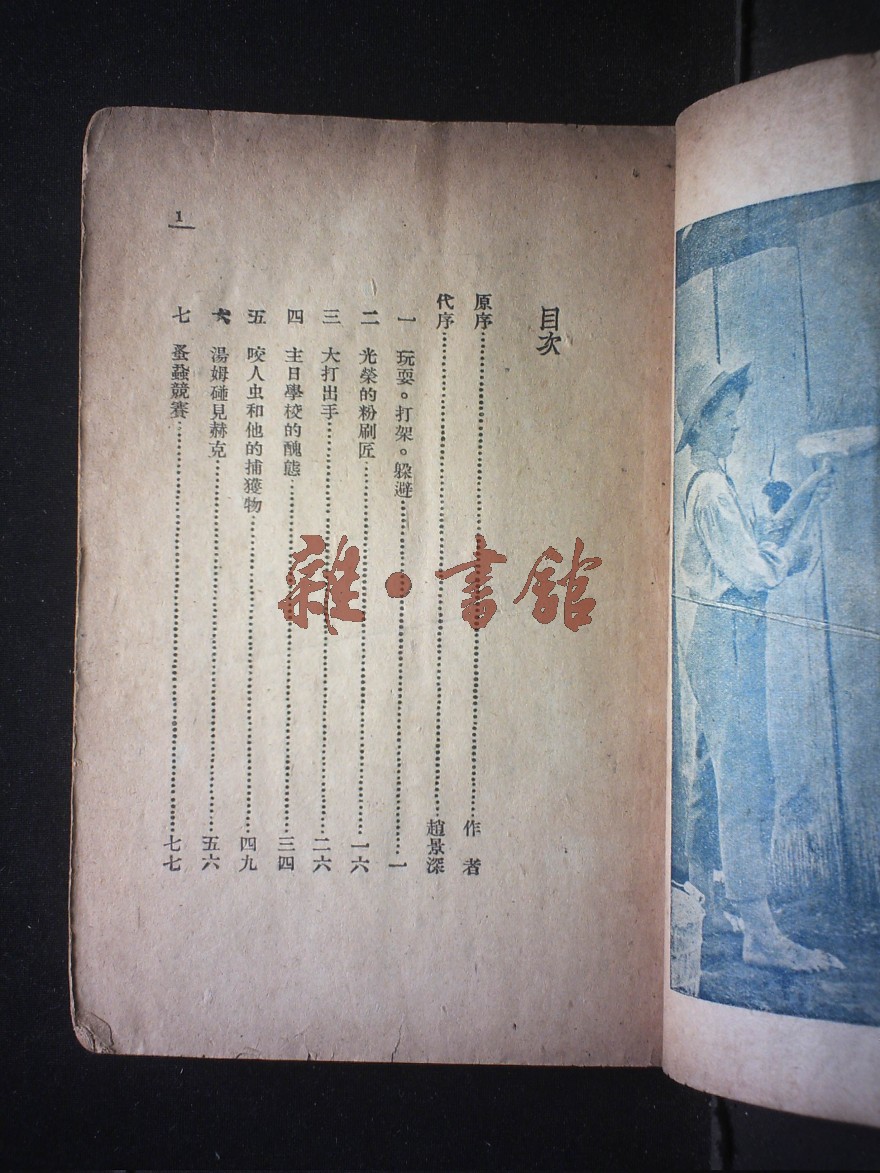 目次
原序……作者
代序……趙景深
一 玩耍。打架。躲避……一
二 光榮的粉刷匠……一六
三 大打出手……二六
四 主日學校的醜態……三四
五 咬人虫和他的捕獲物……四九
六 湯姆碰見赫克……五六
七 蚤蝨競賽……七七
1
雜·書館